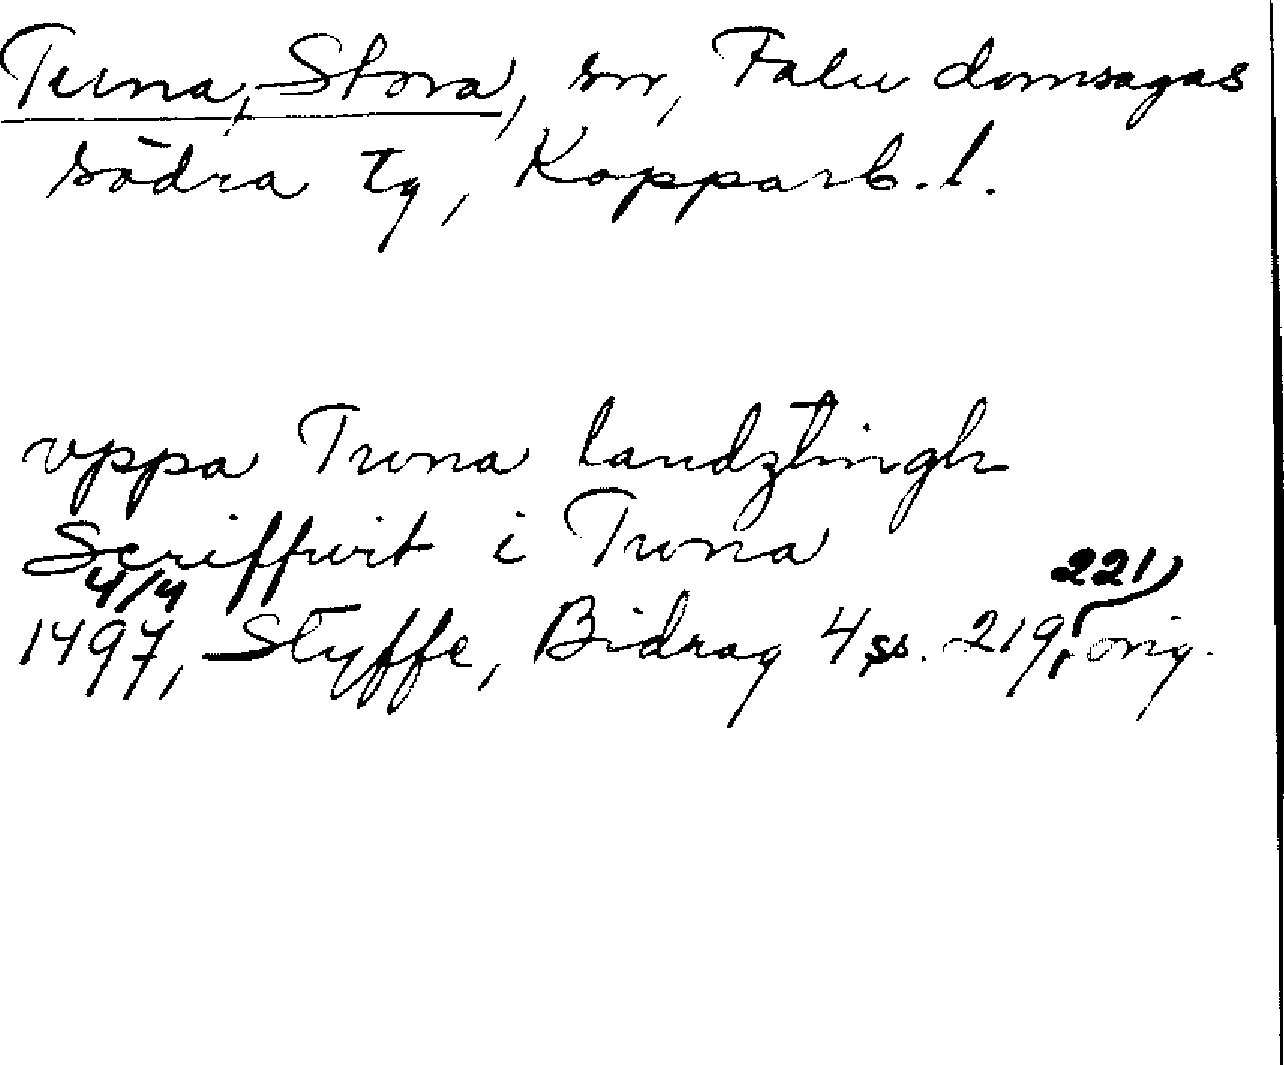 Tuna, Stora, sn, Falu domsagas
södra tg, Kopparb. l.
vppa Twna landztingh
Scriffwit i Twna
4/4 221,
1497, Styffe, Bidrag 4 ss. 219, orig.